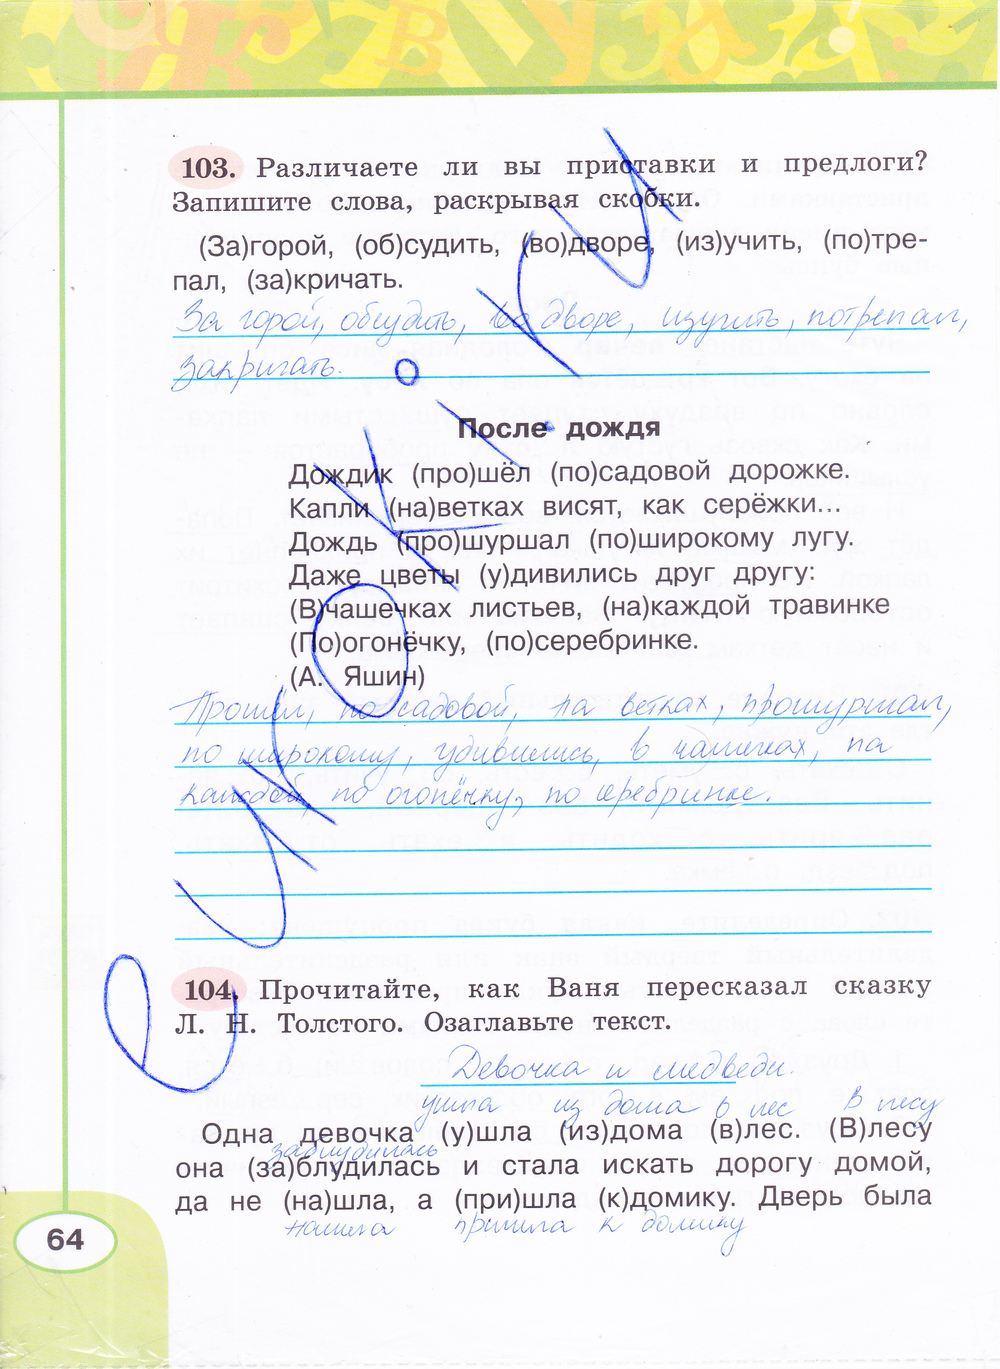 103. Различаете ли вы приставки и предлоги?
Запишите слова, раскрывая скобки.
(За)горой, (об)судить, (во)дворе, (из)учить, (по)тре-
пал, (за)кричать.
За горой, обсудить, во дворе, изучить, потрепал,
закричать.
После дождя
Дождик (про)шёл (по)садовой дорожке.
Капли (на)ветках висят, как серёжки...
Дождь (про)шуршал (по)широкому лугу.
Даже цветы (у)дивились друг другу:
(В)чашечках листьев, (на)каждой травинке
(По)огонёчку, (по)серебринке.
(А. Яшин)
Прошёл, по садовой, на ветках, прошуршал,
по широкому, удивились, в чашечках, на
каждой, по огонёчку, по серебринке.
104. Прочитайте, как Ваня пересказал сказку
Л. Н. Толстого. Озаглавьте текст.
Девочка и медведи.
ушла из дома в лес В лесу
Одна девочка (у)шла (из)дома (в)лес. (В)лесу
заблудилась
она (за)блудилась и стала искать дорогу домой,
да не (на)шла, а (при)шла (к)домику. Дверь была
нашла пришла к домику
64
ЯВУЗАЯ
©UROKI.RU